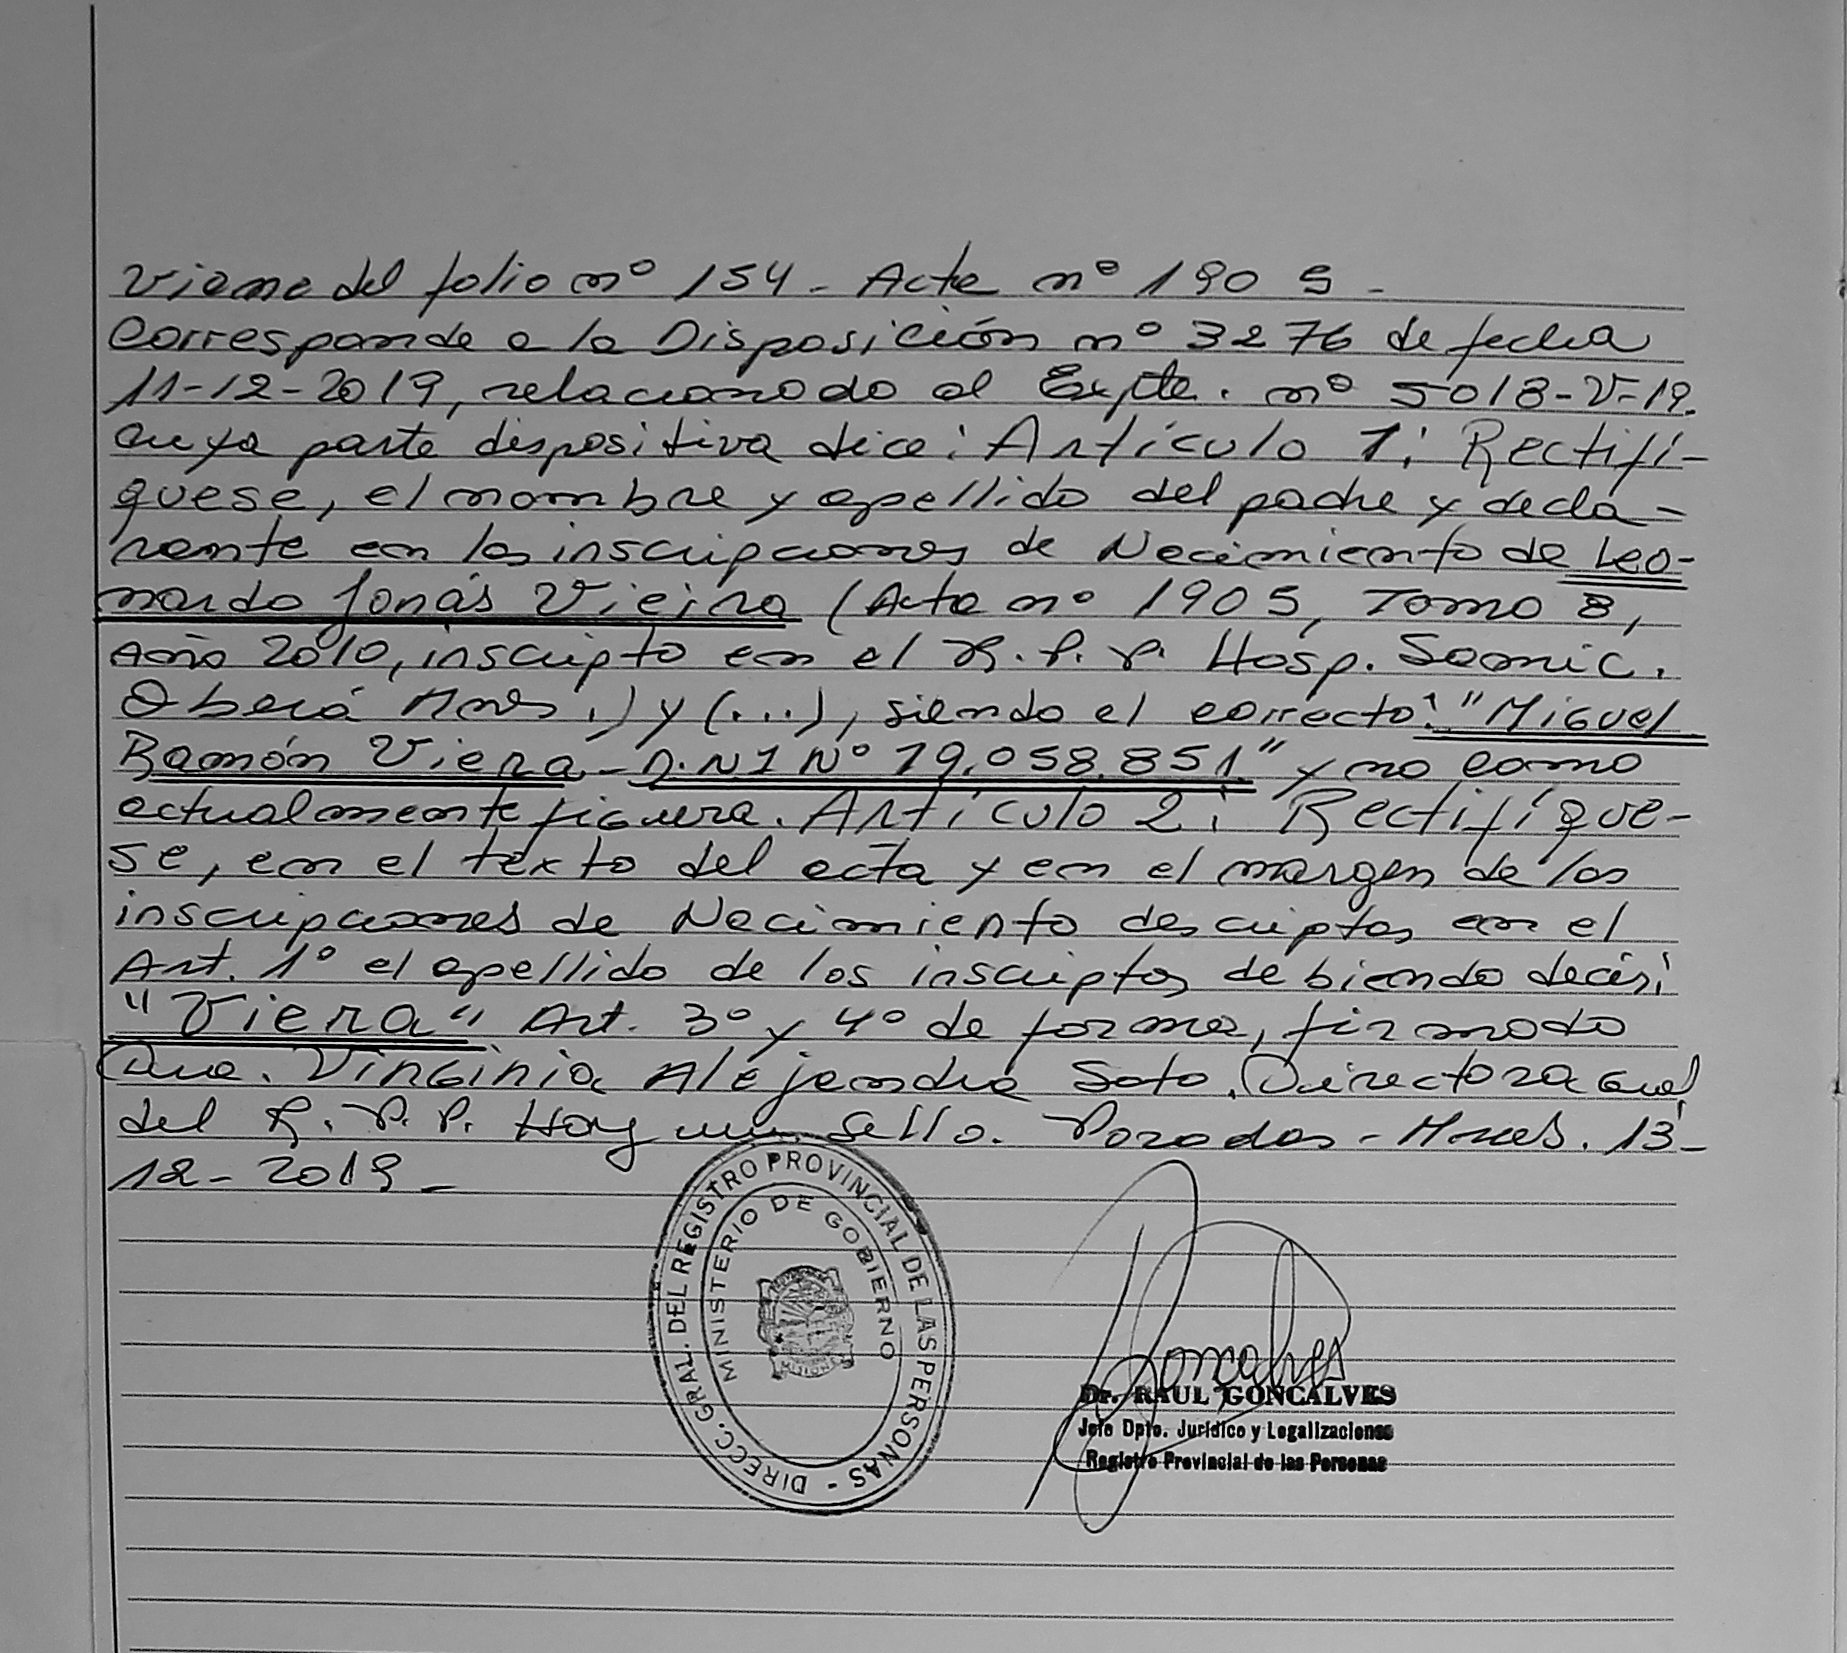 Viene del folio nº 154 - Acta nº 1905 -
Corresponde a la Disposición nº 3276 de fecha
11-12-2019, relacionado al Expte. nº 5018-V-19.
cuya parte dispositiva dice: Artículo 1: Rectifí-
quese, el nombre y apellido del padre y decla-
rante en las inscripciones de Nacimiento de Leo-
nardo Jonás Vieira (Acta nº 1905, Tomo 8,
Año 2010, inscripto en el R.P.P. Hosp. Samic.
Oberá Mnes.) y (...), siendo el correcto: "Miguel
Ramón Viera - D.N.I Nº 19.058.851" y no como
actualmente figura. Artículo 2: Rectifíque-
se, en el texto del acta y en el margen de las
inscripciones de Nacimiento descriptas en el
Art. 1º el apellido de los inscriptos debiendo decir:
"Viera" Art. 3º y 4º de forma, firmado
Dra. Virginia Alejandra Soto. Directora Gral
del R.P.P. Hay un sello. Posadas - Mnes. 13-
12-2019 -
DIRECC. GRAL. DEL REGISTRO PROVINCIAL DE LAS PERSONAS -
MINISTERIO DE GOBIERNO
MISIONES
Goncalves
Dr. RAUL GONCALVES
Jefe Dpto. Jurídico y Legalizaciones
Registro Provincial de las Personas